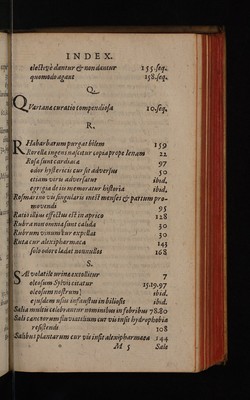 INDEX.
electivè dantur & non dantur 155.seq.
quomodo agant 158.seq.
Q.
QVartana curatio compendiosa 10.seq.
R.
RHabarbarum purgat bilem 159
Rorella ingens nascitur copia prope Ienam 22
Rosa sunt cardiaca 97
odor hystericis cur sit adversus 50
etiam viris adversatur ibid.
egregia de iis memoratur historia ibid.
Rosmarino vis singularis inest menses & partum promovendi 95
Rutæ silius effectus est in aprico 128
Rubra non omnia sunt calida 30
Rubrum vinum bur expellas 30
Ruta cur alexipharmaca 145
solo odore ladat nonnullos 168
S.
SAl volatile urina extollitur 7
oleosum Sylvii citatur 15.19.97
oleosum nostrum ibid.
ejusdem usus infaustus in biliosis ibid.
Salia multis celebrantur nominibus in febribus 78.80
Sali cancrorum fluviatilium cur vis insit hydrophobia resistendi 108
Salibus plantarum cur vis insit alexipharmaca 144
M 5
Salis